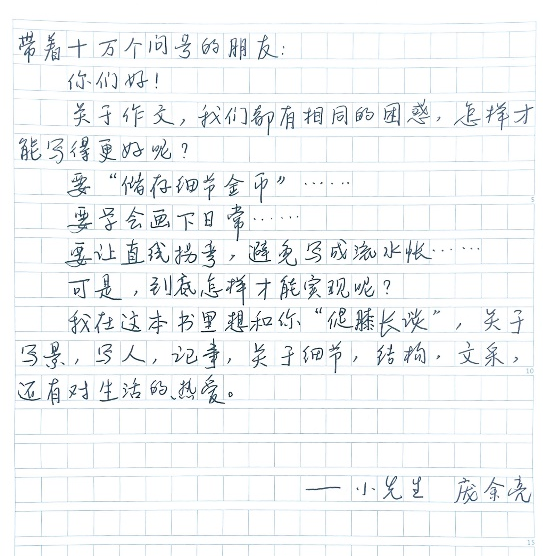 带着十万个问号的朋友：
你们好！
关于作文，我们都有相同的困惑，怎样才
能写得更好呢？
要“储存细节金币”……
要学会画下日常……
要让直线拐弯，避免写成流水帐……
可是，到底怎样才能实现呢？
我在这本书里想和你“促膝长谈”，关于
写景，写人，记事，关于细节，结构，文采，
还有对生活的热爱。
——小先生 庞余亮
5
10
15